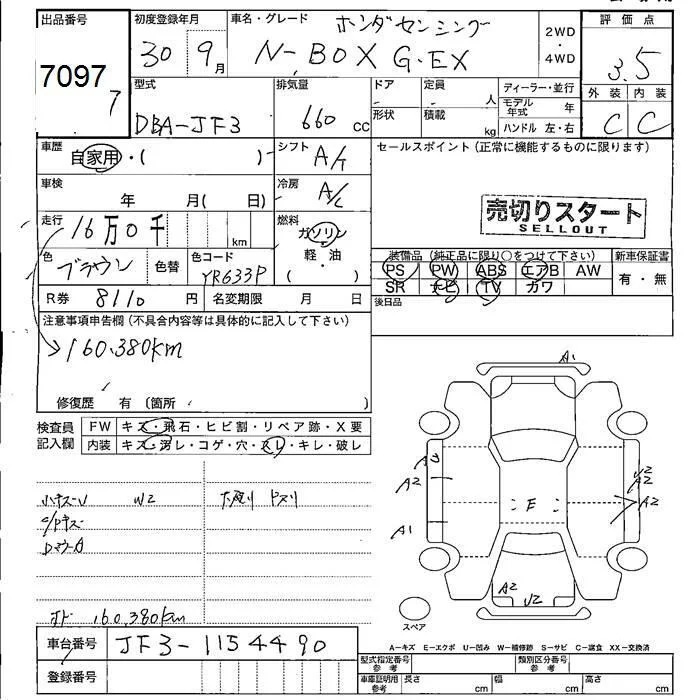 出品番号 初度登録年月 車名・グレード ホンダセンシング 評価点
7097 30 9月 N-BOX G・EX 2WD・4WD 3.5
7
型式 排気量 ドア 定員 人 ディーラー・並行 外装 内装
DBA-JF3 660 cc 形状 積載 kg モデル年式 年 C C
ハンドル 左・右
車歴 自家用・( ) シフト A/T セールスポイント (正常に機能するものに限ります)
車検 年 月( 日) 冷房 A/C
売切りスタート
SELLOUT
走行 16万0千 km 燃料 ガソリン・軽油
色 ブラウン 色替 色コード YR633P ( )
装備品 (純正品に限り○をつけて下さい) 新車保証書
PS PW ABS エアB AW 有・無
SR ナビ TV カワ
R券 8110 円 名変期限 月 日 後日品
注意事項申告欄 (不具合内容等は具体的に記入して下さい)
160.380km
修復歴 有 (箇所 )
検査員記入欄 FW キズ・飛石・ヒビ割・リペア跡・X要
内装 キズ・汚レ・コゲ・穴・スレ・キレ・破レ
A1
小キズ-U W2
A2
A1
E
U2
A2
A2
A2
U2
160.380km
スペア
A-キズ E-エクボ U-凹み W-補修跡 S-サビ C-腐食 XX-交換済
車台番号 JF3-1154490
登録番号
型式指定番号 参考 類別区分番号 参考
車庫証明用 参考 長さ cm 幅 cm 高さ cm